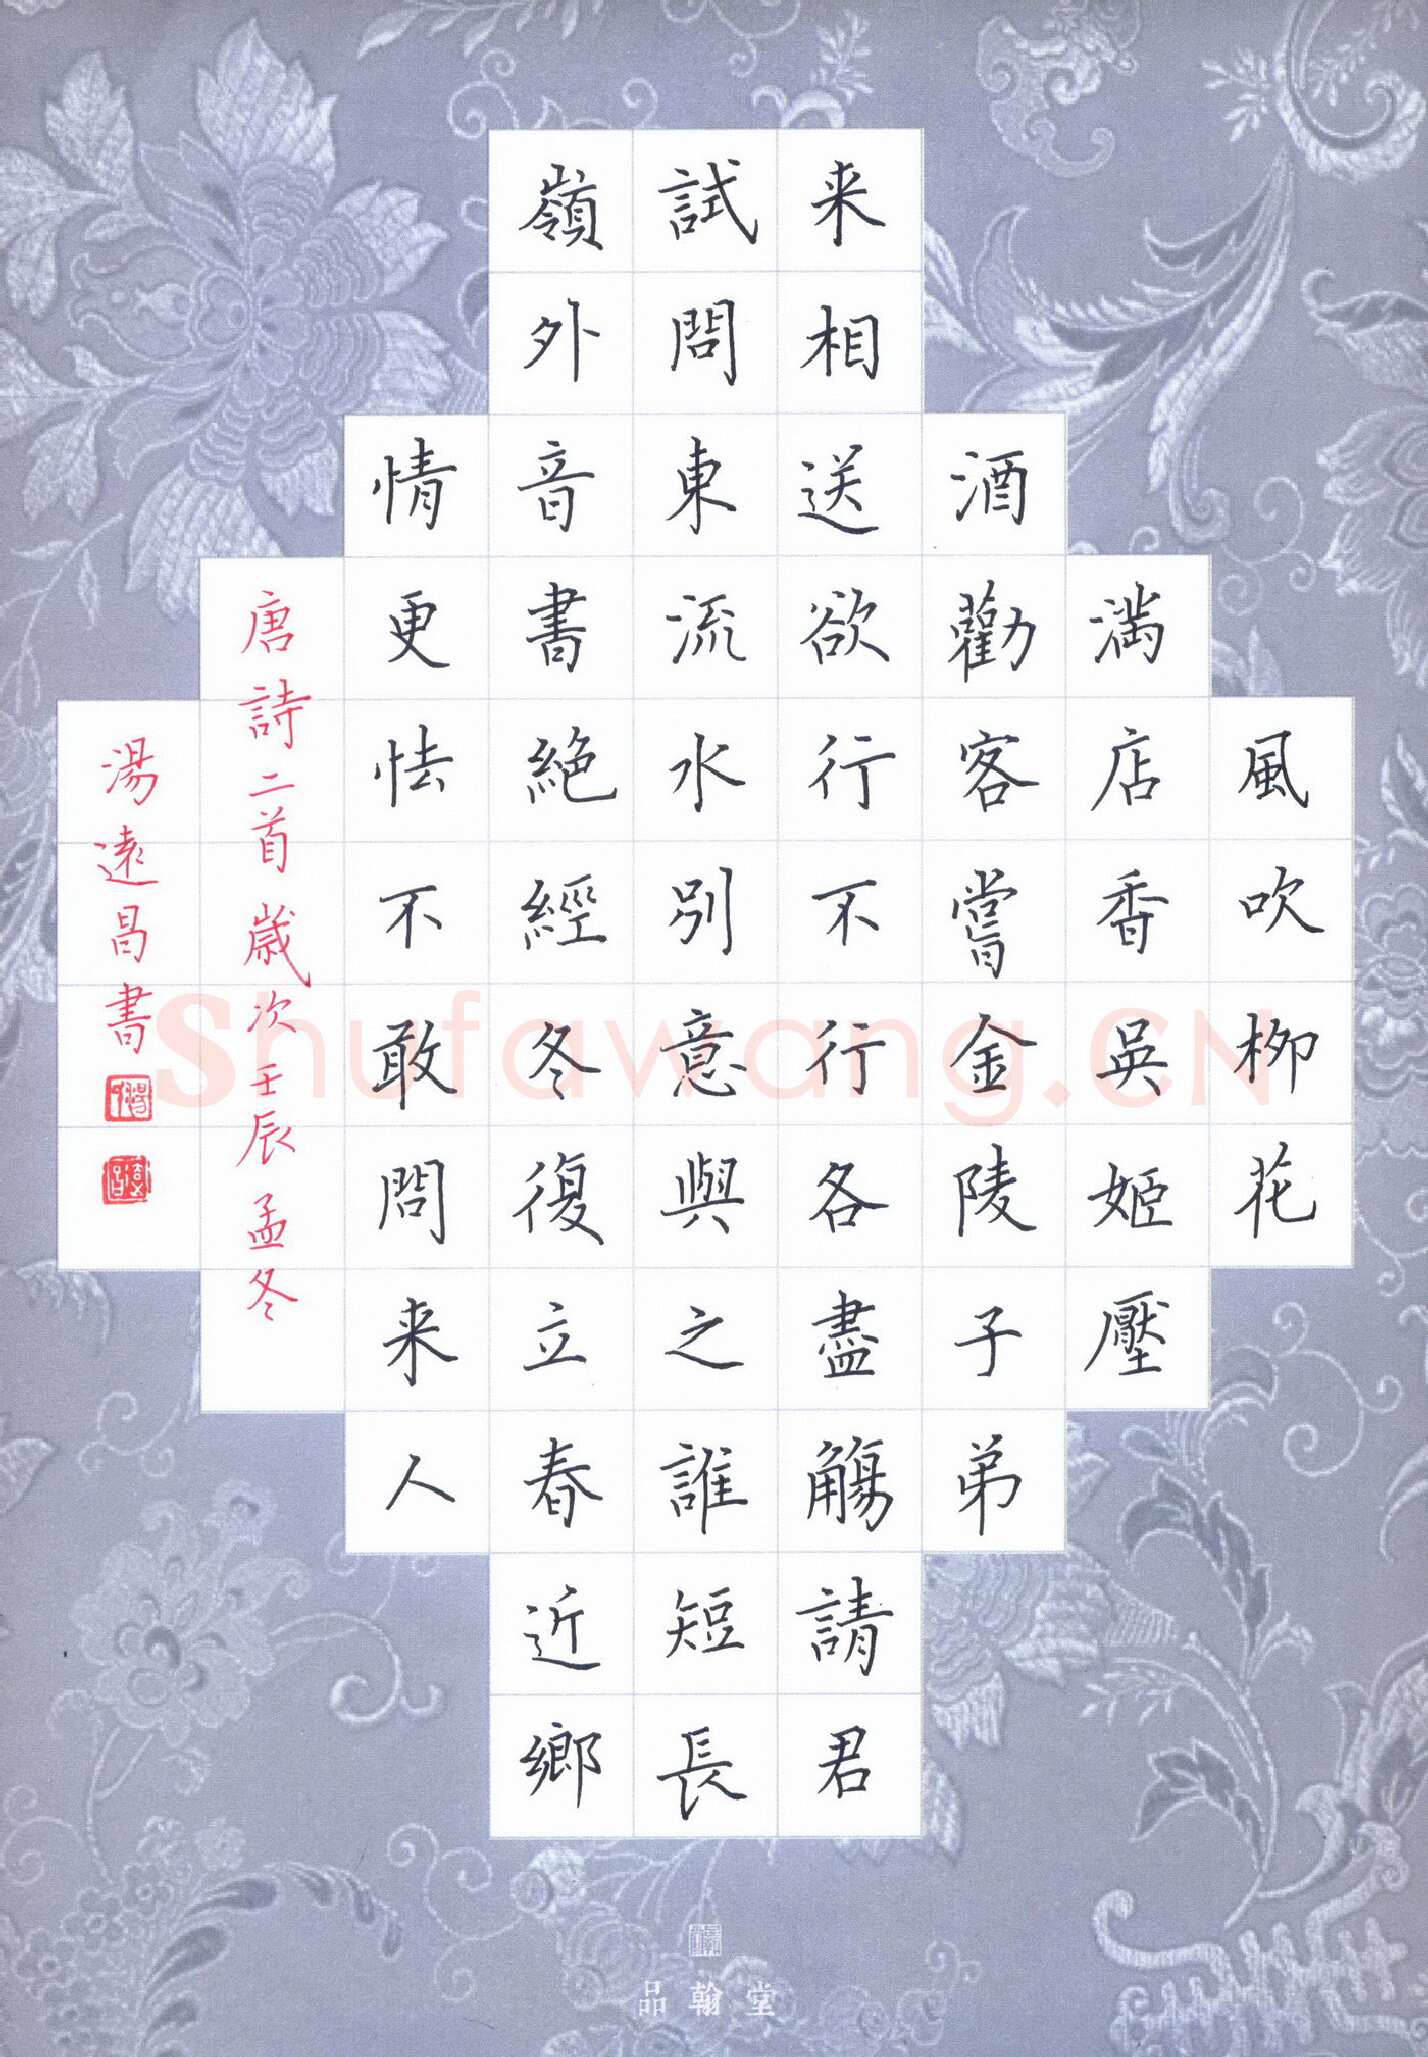 風吹柳花
滿店香吳姬壓
酒勸客嘗金陵子弟
来相送欲行不行各盡觴請君
試問東流水別意與之誰短長
嶺外音書絕經冬復立春近鄉
情更怯不敢問来人
唐詩二首歲次壬辰孟冬
湯遠昌書
Shufawang.CN
品翰堂